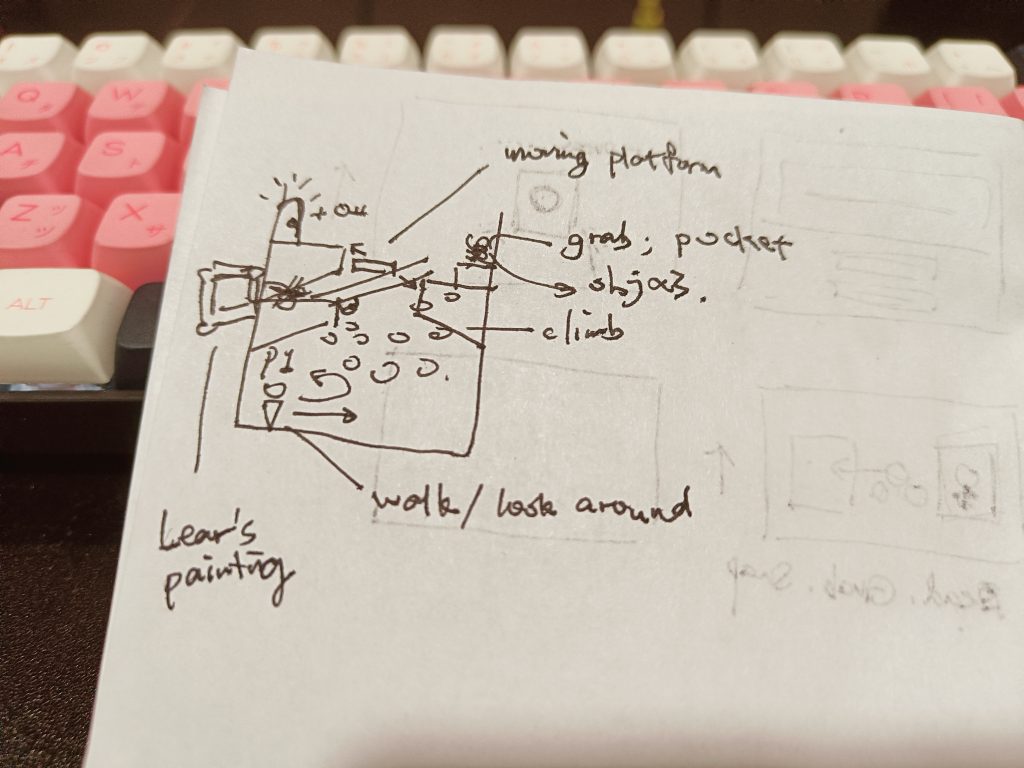 Q W
A S
Z X
ALT
moving platform
grab; pocket
climb
P1
walk/look around
Lear's
painting